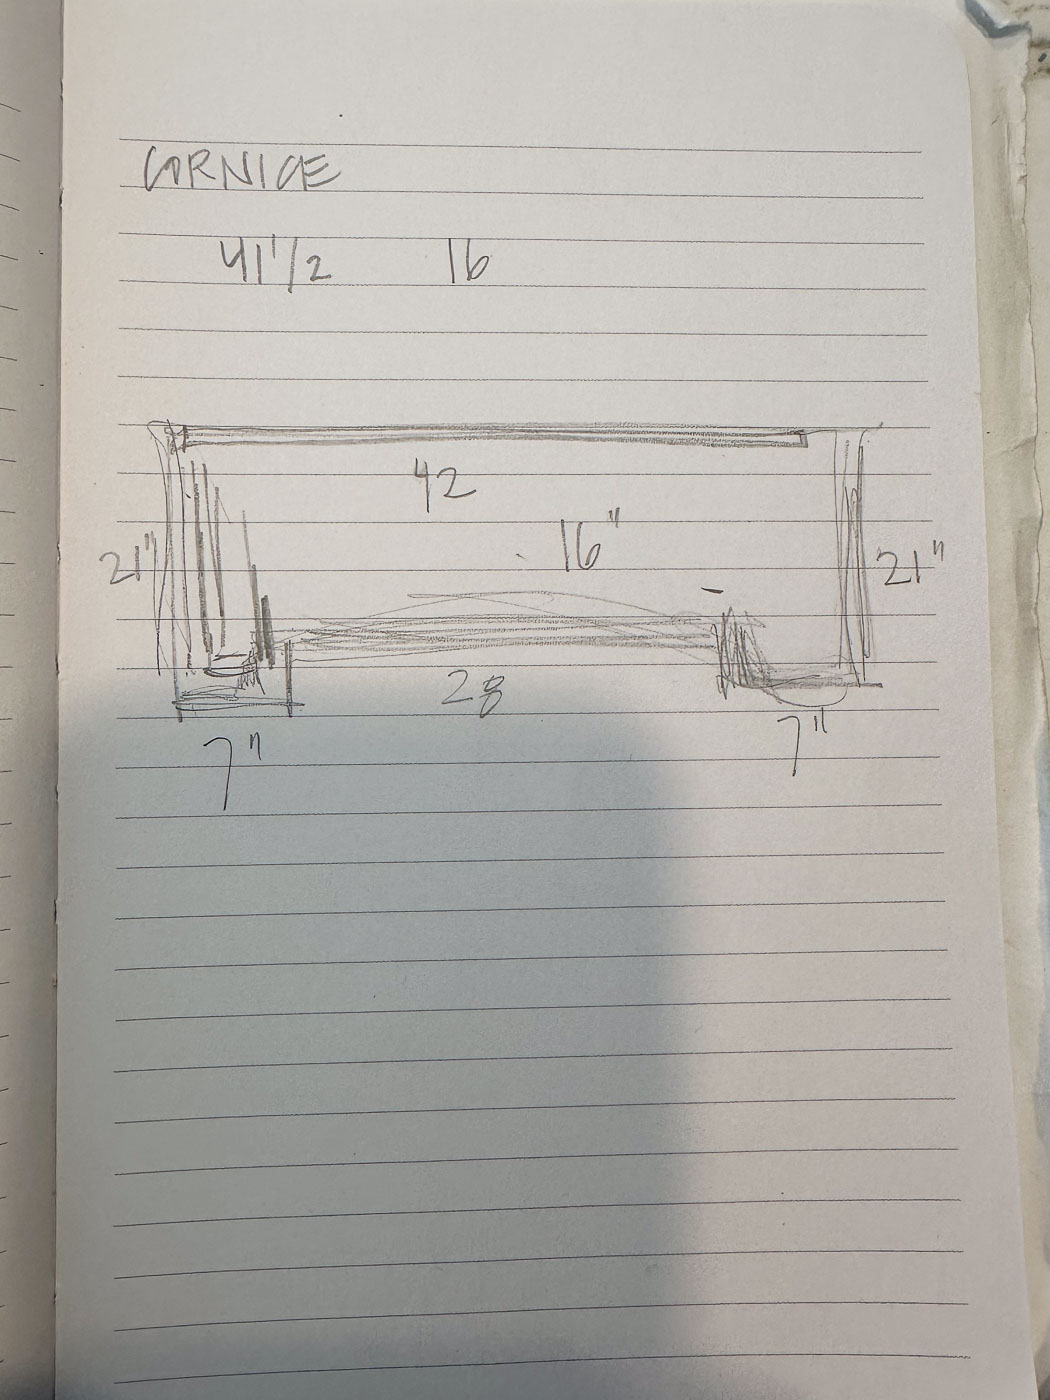 CORNICE
41 1/2 16
42
16"
21" 21"
28
7" 7"